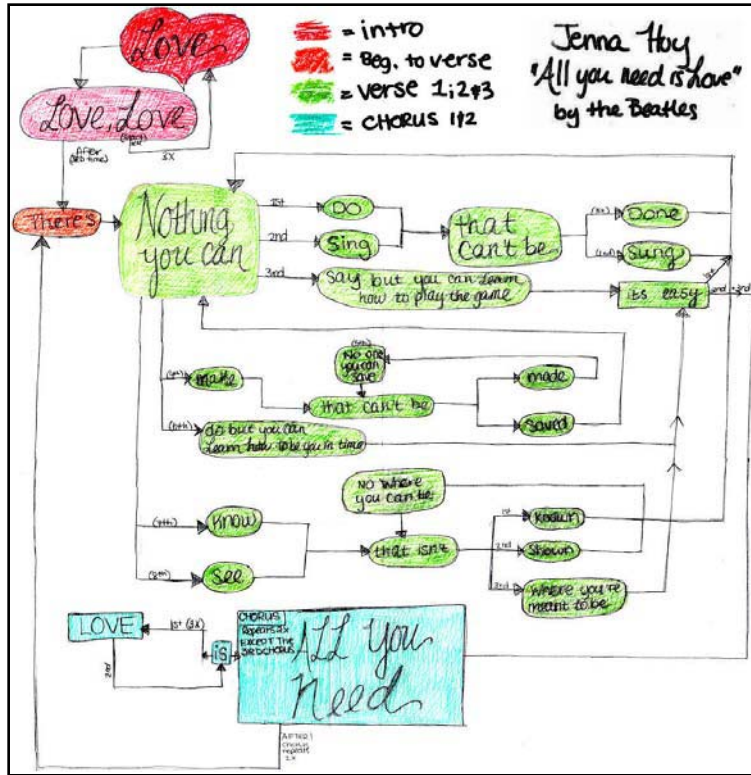 Love
= intro
= Beg. to verse
= verse 1,2+3
= CHORUS 1+2
Jenna Huy
"All you need is Love"
by the Beatles
Love, Love
3X
AFTER
There's
Nothing
you can
1st
DO
2nd
Sing
3rd
Say but you can Learn
how to play the game
that
can't be
Done
Sung
1st
its easy
2nd + 3rd
make
No one
you can
save
that can't be
made
saved
(6th)
do but you can
Learn how to be you in time
(7th)
Know
(8th)
See
No where
you can be
that isn't
1st
Known
2nd
Shown
Where you're
meant to be
LOVE
1st (3X)
2nd
is
CHORUS
Repeats 2x
EXCEPT THE
3RD CHORUS
ALL You
Need
AFTER
chorus
repeats
2X